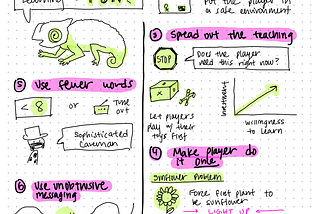 Put the player in
a safe environment
③ Spread out the teaching
STOP
Does the player
need this right now?
Let players
play w/ their
toys first
Investment
willingness
to learn
④ Make player do
it once
Sunflower Problem
Force first plant to
be sunflower
LIGHT UP
⑤ Use fewer words
< 8
or
Time
out
Sophisticated
Caveman
⑥ Use unobtrusive
messaging